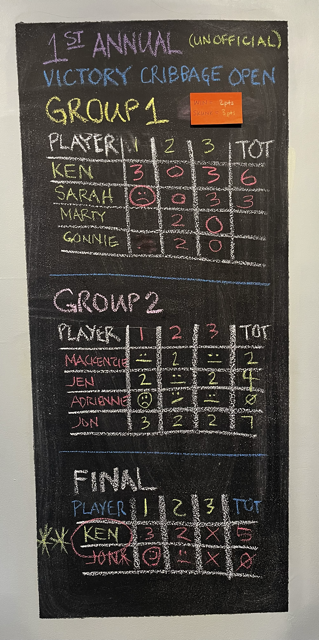 1ST ANNUAL (UNOFFICIAL)
VICTORY CRIBBAGE OPEN
GROUP 1
2pts
3pts
PLAYER 1 2 3 TOT
KEN 3 0 3 6
SARAH 0 3 3
MARTY 2 0
CONNIE 2 0
GROUP 2
PLAYER 1 2 3 TOT
MACKENZIE 2 2
JEN 2 2 4
ADRIENNE 0
JON 3 2 2 7
FINAL
PLAYER 1 2 3 TOT
KEN 3 2 X 5
JON X 0